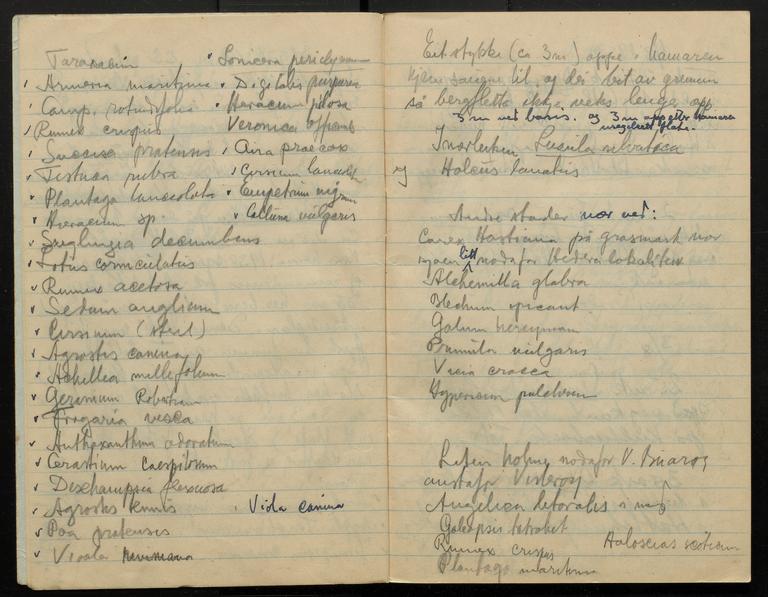 Taraxacum
Armeria maritima
Camp. rotundifolia
Rumex crispus
Succisa pratensis
Festuca rubra
Plantago lanceolata
Hieracium sp.
Sieglingia decumbens
Lotus corniculatus
Rumex acetosa
Sedum anglicum
Cirsium (steril)
Agrostis canina
Achillea millefolium
Geranium Robertian
Fragaria vesca
Anthoxanthum odoratum
Cerastium caespitosum
Deschampsia flexuosa
Agrostis tenuis
Poa pratensis
Viola riviniana
Lonicera periclym
Digitalis purpurea
Hieracium pilosa
Veronica offisinal
Aira praecox
Cirsium lanceolat
Empetrum nigrum
Calluna vulgaris
Viola canina
Eit stykke (ca 3m) oppe i hamaren
sauene til, og dei beit av greinene
så bergfletta ikkje veks lenger opp
3 m ved basis. og 3 m opp etter hamaren
Luzula silvatica
Holcus lanatus
Andre stader nær ved:
Carex Hostiana på grasmark nær
sjøen litt nodafor Hedera lokaliteten
Alchemilla glabra
Blechnum spicant
Galium hercynicum
Primula vulgaris
Vicia cracca
Hypericum pulchrum
Liten holme nodafor V.
austafor
Angelica litoralis i
Galeopsis tetrahit
Rumex crispus
Haloscias scoticum
Plantago maritima